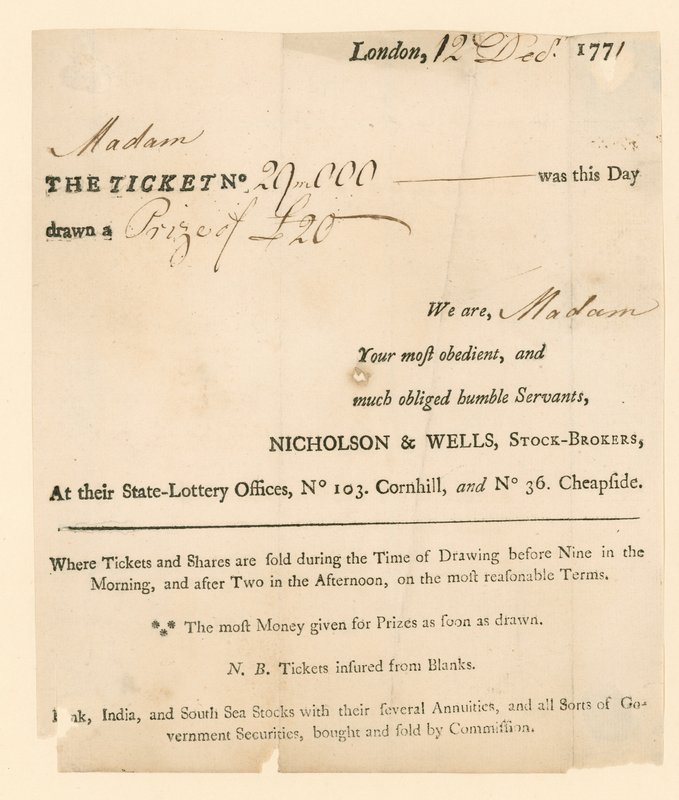 London, 12 Dec.r 1771
Madam
THE TICKET No. 29m000 was this Day
drawn a Prize of £20
We are, Madam
Your moſt obedient, and
much obliged humble Servants,
NICHOLSON & WELLS, STOCK-BROKERS,
At their State-Lottery Offices, No 103. Cornhill, and No 36. Cheapſide.
Where Tickets and Shares are ſold during the Time of Drawing before Nine in the
Morning, and after Two in the Afternoon, on the moſt reaſonable Terms.
*** The moſt Money given for Prizes as ſoon as drawn.
N. B. Tickets inſured from Blanks.
India, and South Sea Stocks with their ſeveral Annuities, and all Sorts of Go-
vernment Securities, bought and ſold by Commiſſion.